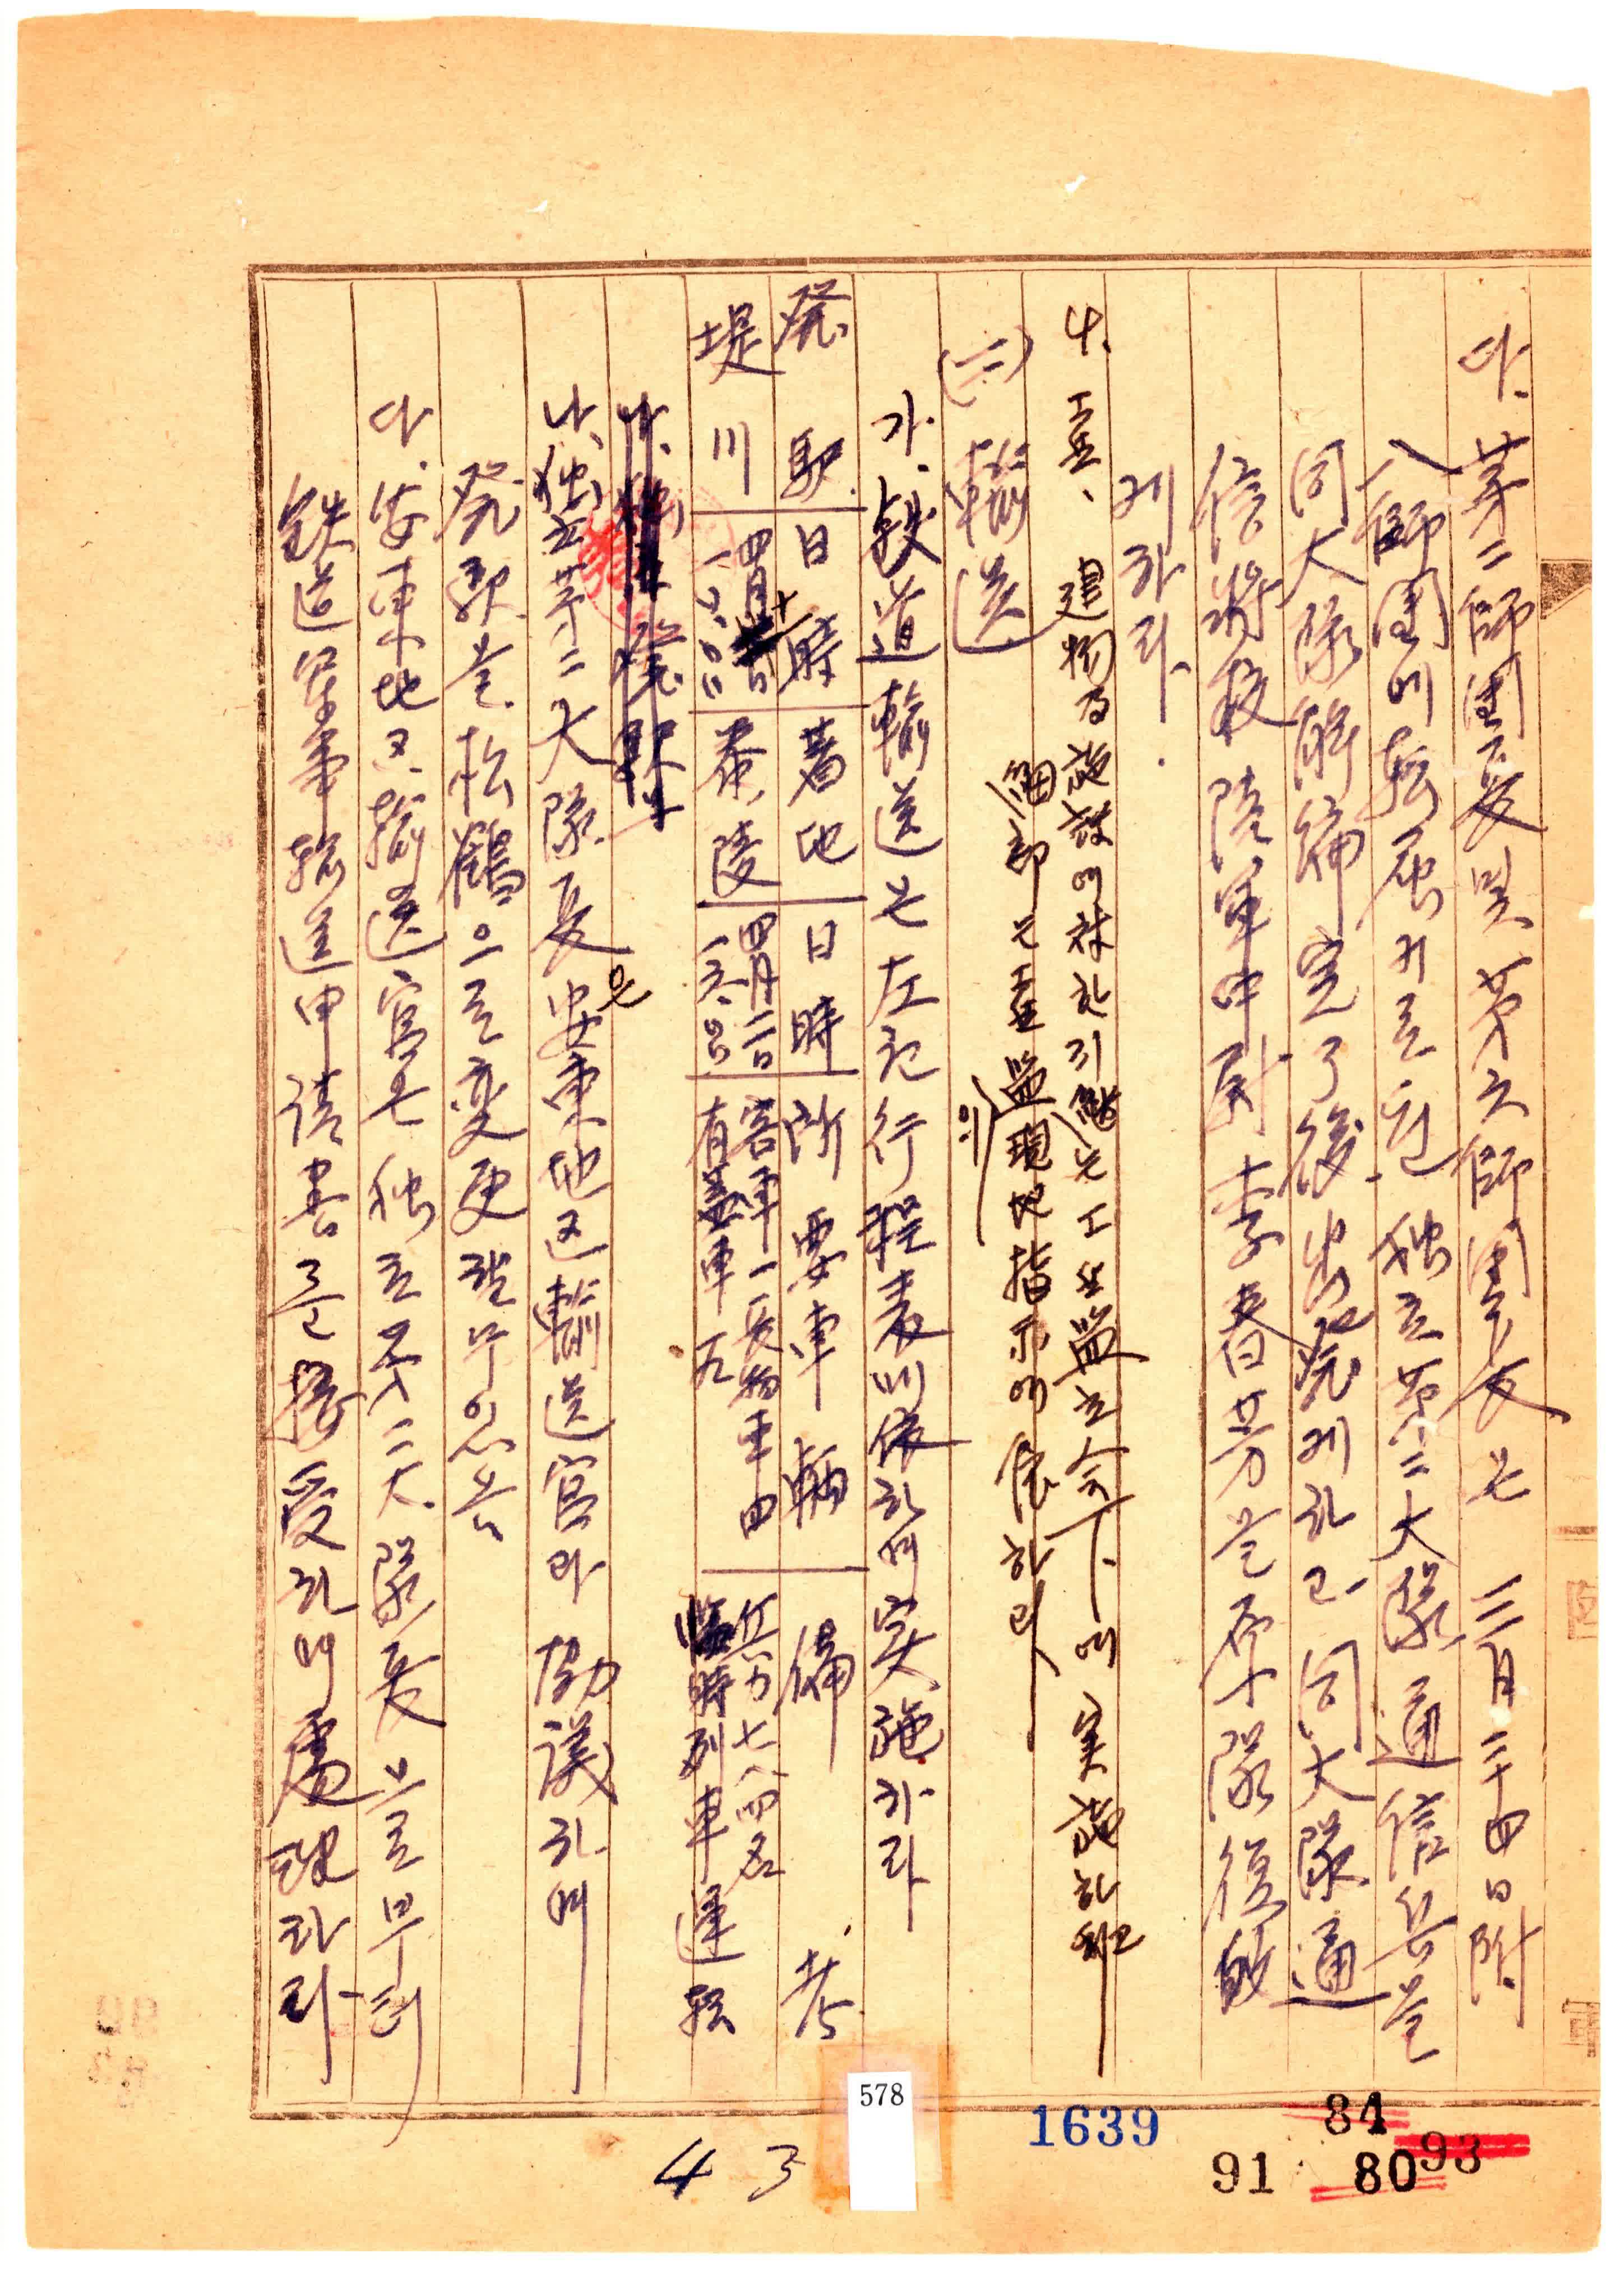 다. 第二師團長 및 第六師團長은 三月二十四日附
八師團에 転属키로 된 独立 第二大隊 通信兵을
同大隊 解編 完了 後 出発케 하고 同大隊 通
信將校 陸軍中尉 李春芳은 原隊 復敀
케 하라.
4. 工兵、建物 及 施設에 対한 引継은 工兵監 立会下에 実施하되
細部는 工兵監 現地 指示에 依하라
(二) 輸送
가. 鉄道輸送은 左記 行程表에 依하여 実施하라
発駅 日時 着地 日時 所要車輌 備考
堤川 四月 一六.00 泰陵 四月二日 一五.00 客車一 長物車四 有蓋車五 兵力七八四名 臨時列車運転
나. 独立第二大隊長은 安東地区 輸送官과 協議하여
発駅을 松鶴으로 変更할 수 있음
다. 安東地区 輸送官은 独立 第二大隊長으로부터
鉄道軍事輸送申請書를 接受하여 處理하라
578
1639
84
91 80 93
43